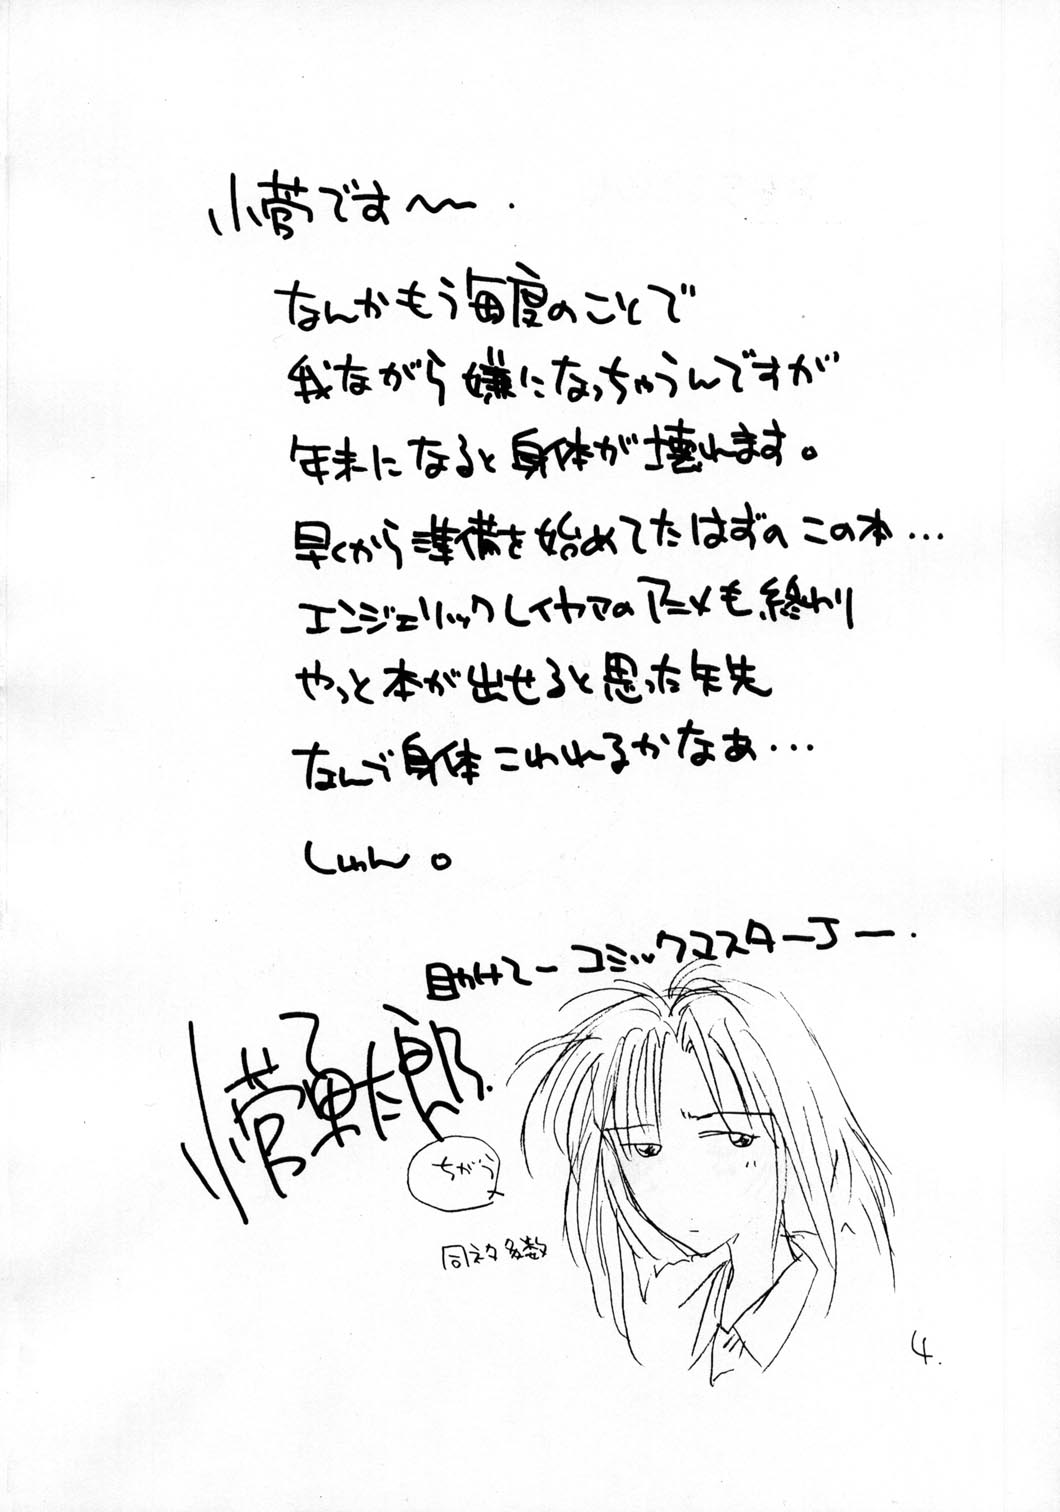 小菅です〜〜.
なんかもう毎度のことで
我ながら嫌になっちゃうんですが
年末になると身体が壊れます。
早くから準備を始めてたはずのこの本…
エンジェリックレイヤアのアニメも終わり
やっと本が出せると思った矢先
なんで身体こわれるかなあ…
しゅん。
助けてーコミックマスターJー.
小菅勇太郎.
ちがう
同ネタ多数
4.